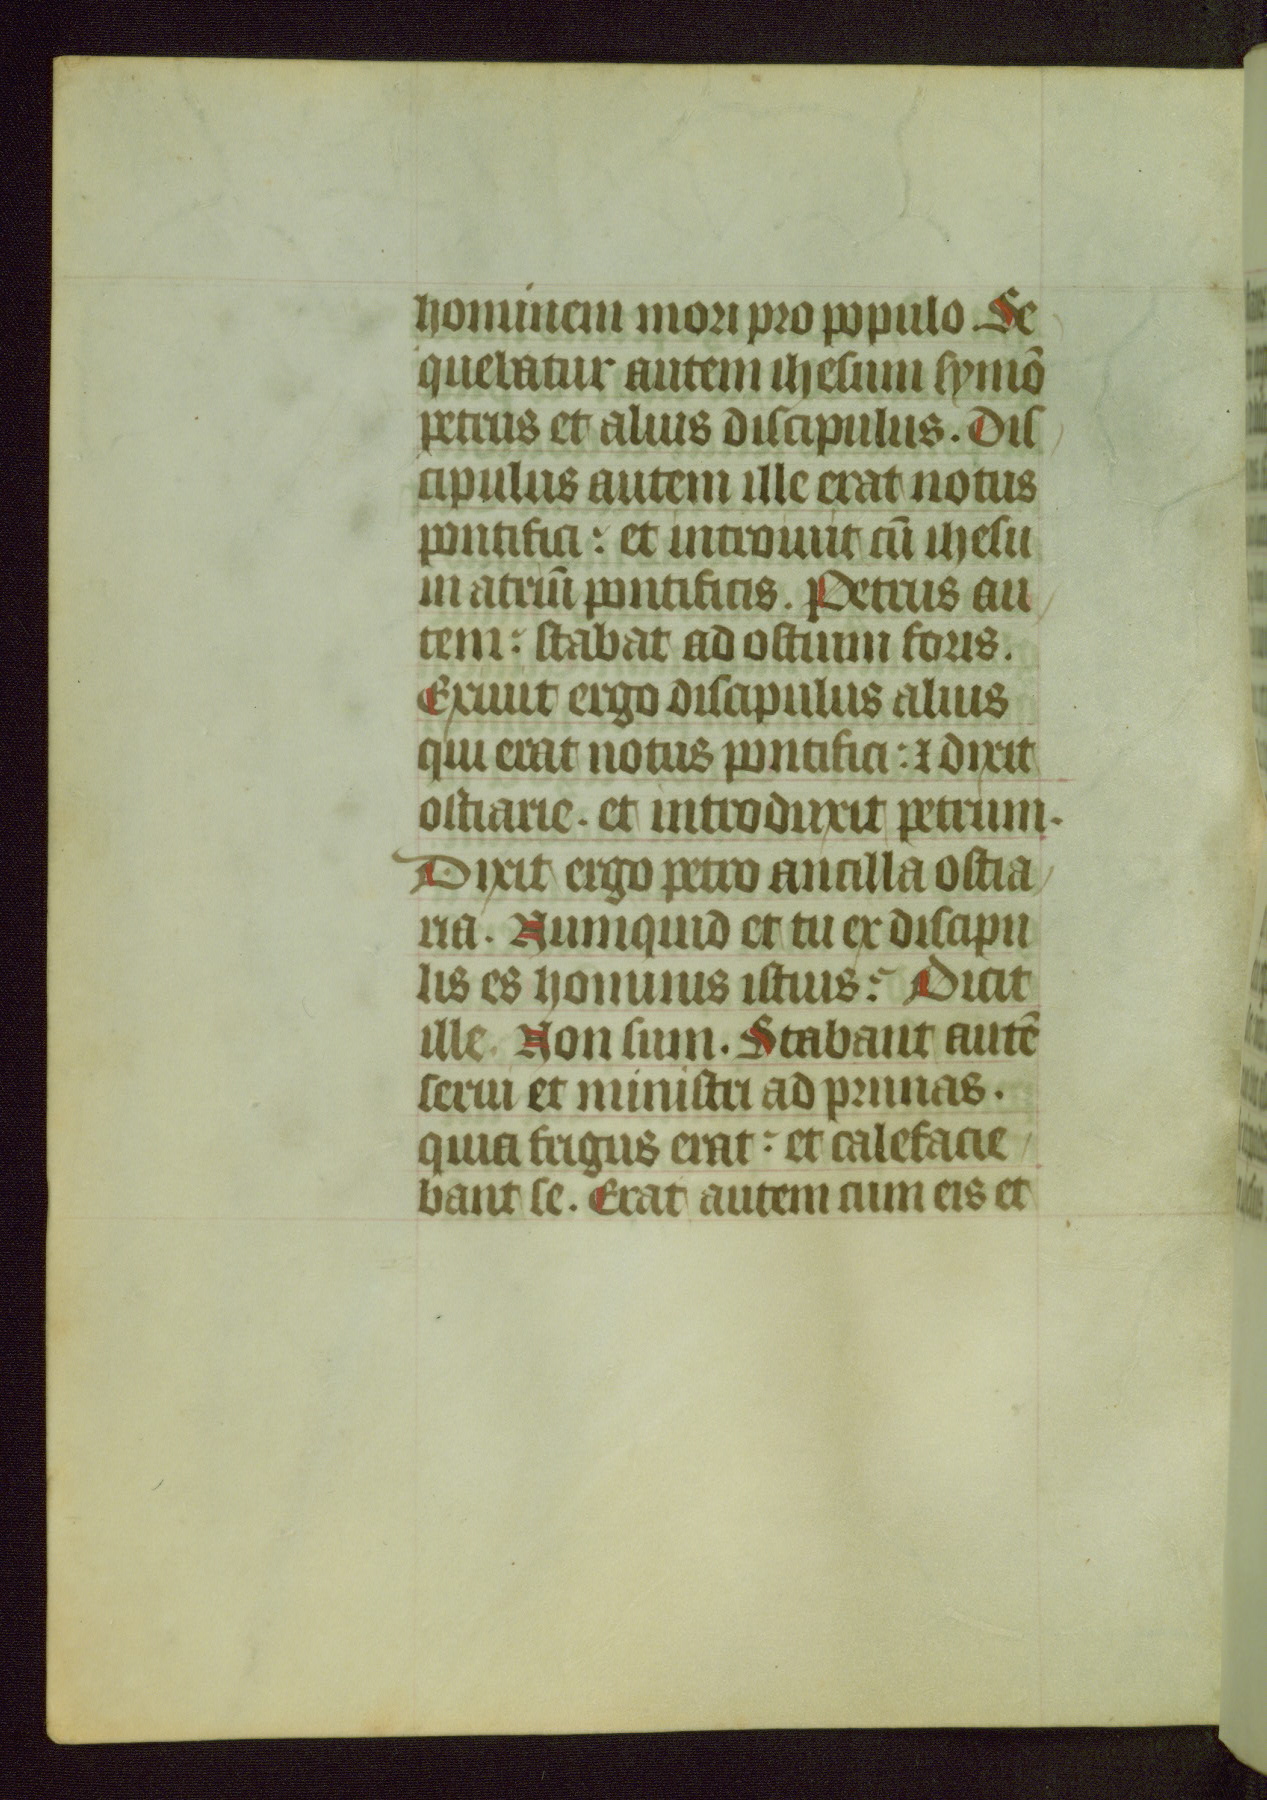 hominem mori pro populo. Se
quebatur autem ihesum symō
petrus et alius discipulus. Dis
cipulus autem ille erat notus
pontifici: et introiuit cū ihesu
in atriū pontificis. Petrus au
tem: stabat ad ostium foris.
Exiuit ergo discipulus alius
qui erat notus pontifici: ⁊ dixit
ostiarie. et introduxit petrum.
Dixit ergo petro ancilla ostia
ria. Numquid et tu ex discipu
lis es hominis istius: Dicit
ille. Non sum. Stabant autē
serui et ministri ad prunas.
quia frigus erat: et calefacie
bant se. Erat autem cum eis et